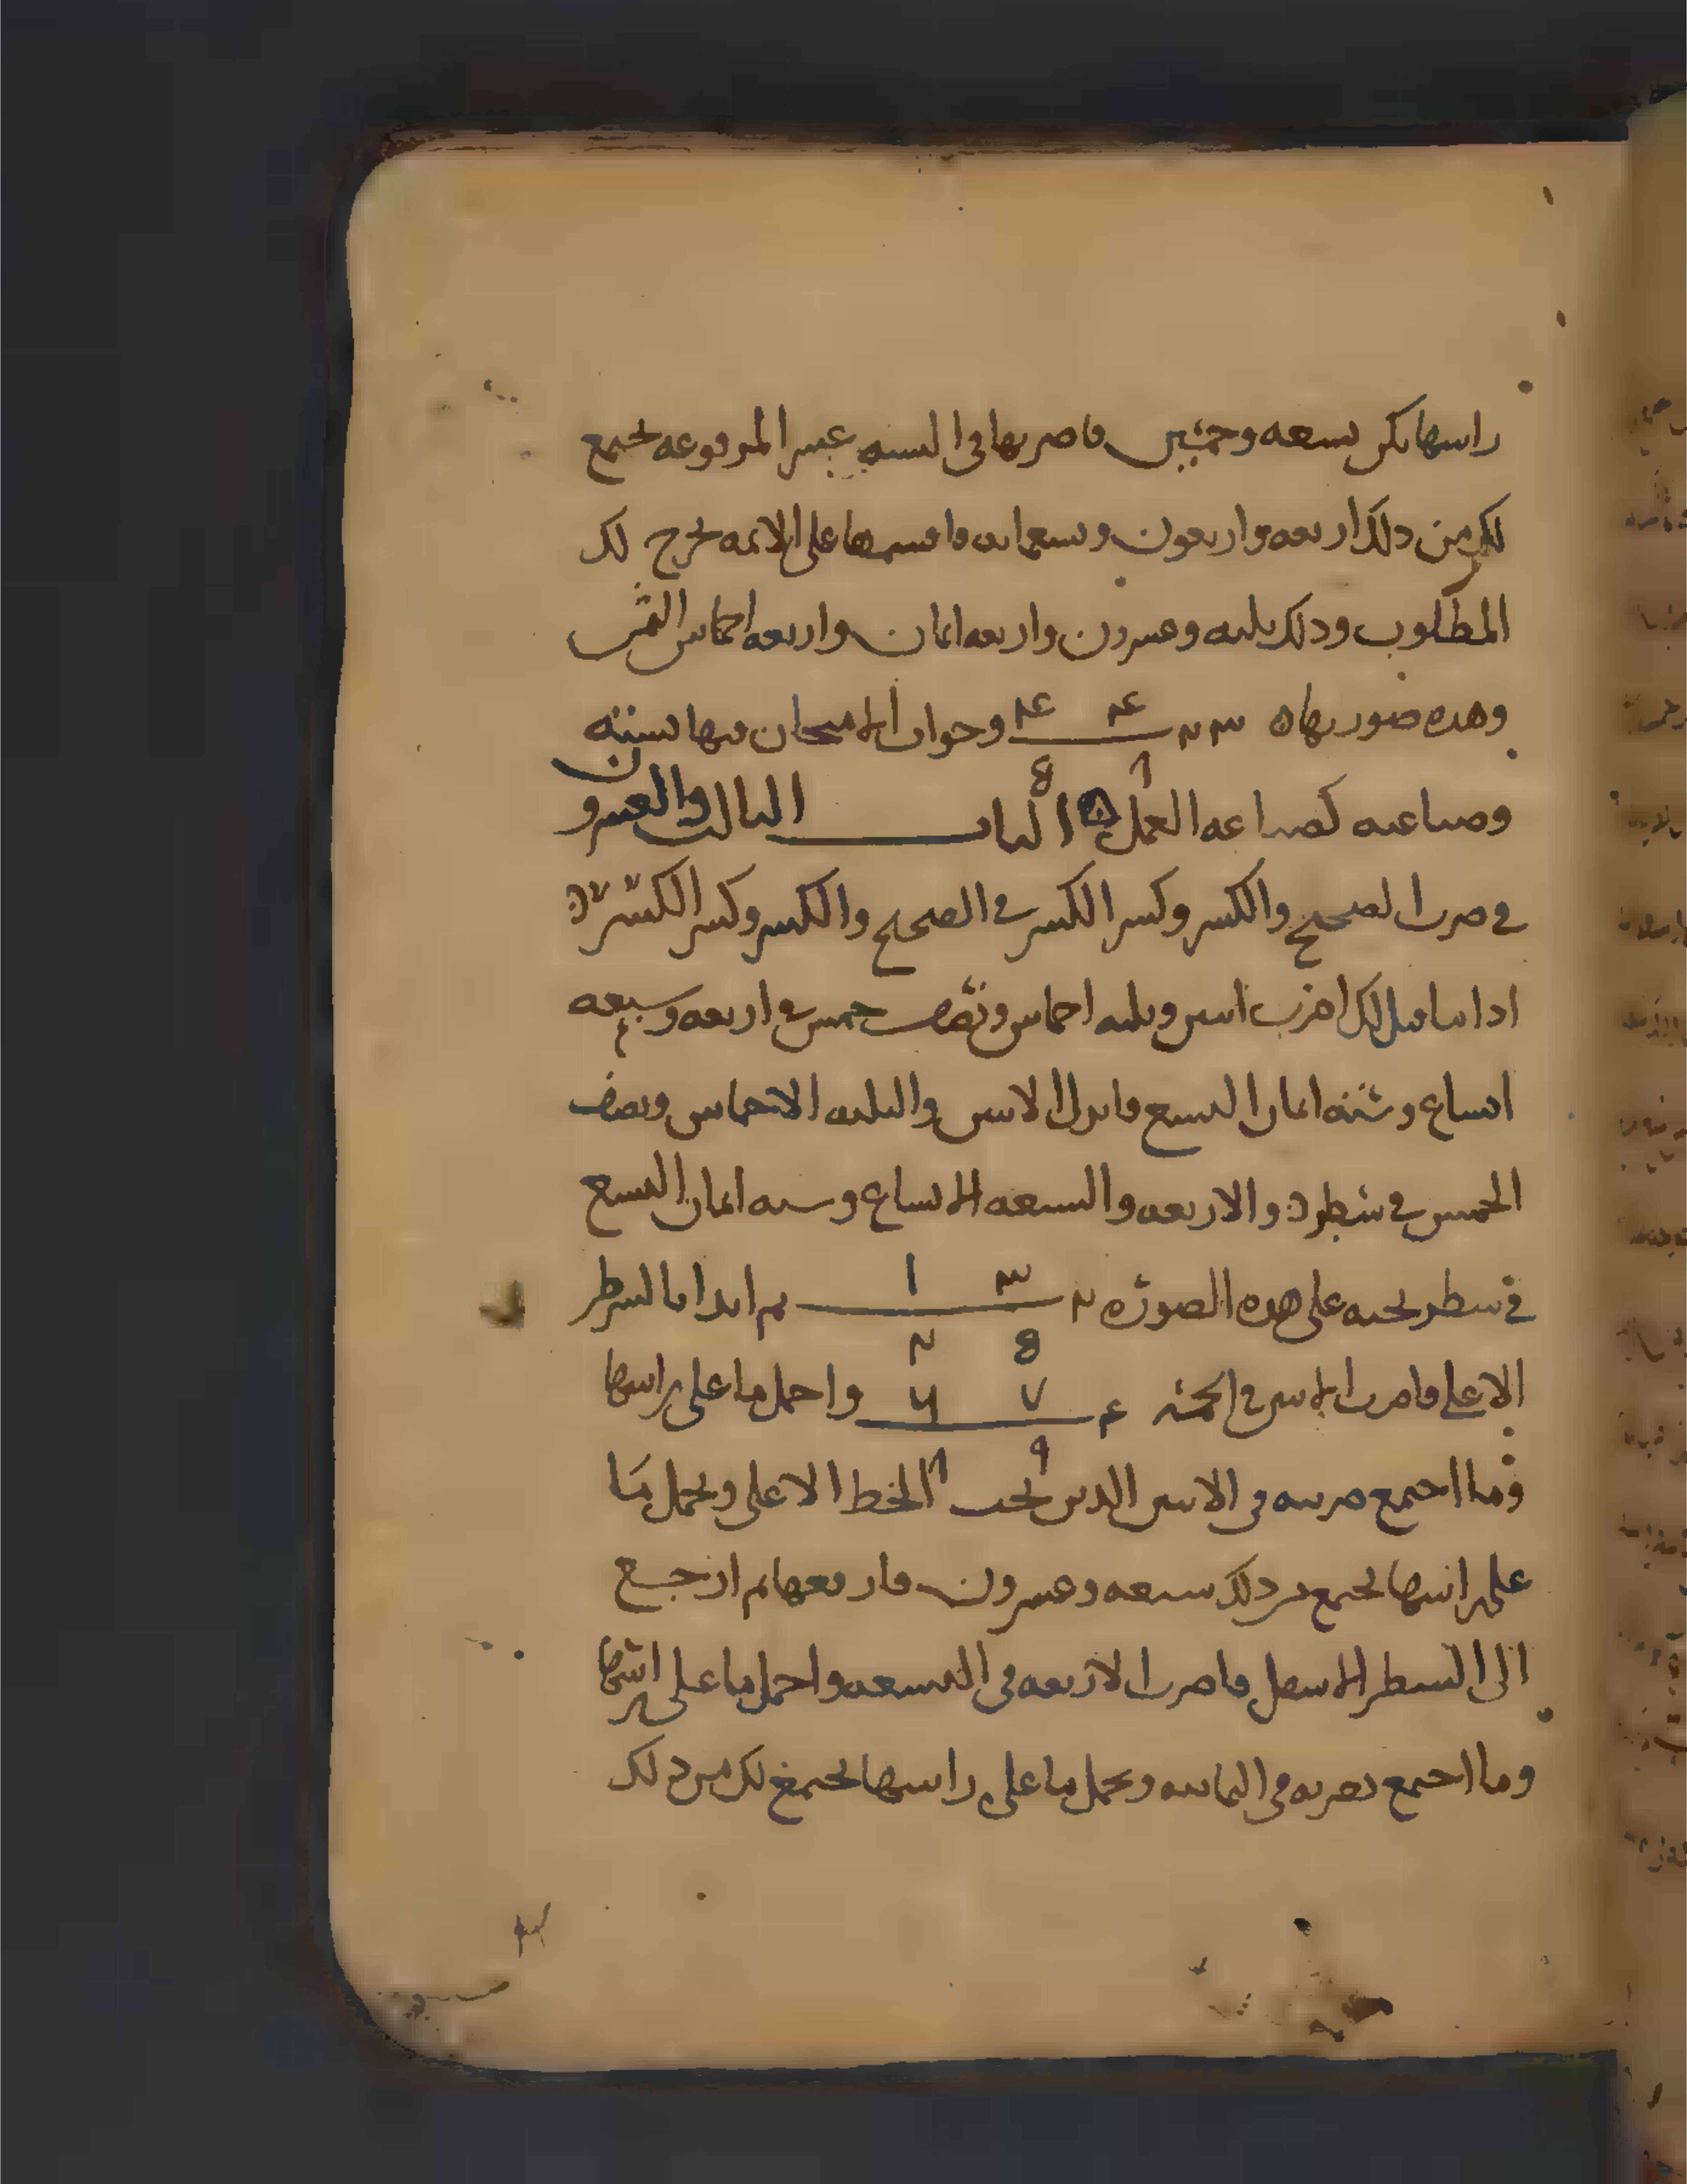 راسها تكن تسعه وخمسين فاضربها في الستة عشر المرفوعه تجتمع
لك من ذلك اربعه واربعون وتسعمايه فاقسمها على الايمه تخرج لك
المطلوب وذلك ثلثه وعشرون واربعه اثمان واربعه اخماس الثمن
وهذه صورتها ه ٢٣ ٤ ٤ وجواب الامتحان فيها ستة
٨ ٥
وصناعته كصناعه العمل ه الباب الثالث والعشرون
في ضرب الصحيح والكسر وكسر الكسر في الصحيح والكسر وكسر الكسر
اذا ما قيل لك اضرب اثنين وثلثه اخماس ونصف خمس في اربعه وسبعه
اتساع وستة اثمان التسع فانزل الاثنين والثلثه الاخماس ونصف
الخمس في سطر والاربعه والسبعه الاتساع وسته اثمان التسع
في سطر تحته على هذه الصورة ٢ ٣ ١ ثم ابدا بالسطر
٥ ٢
الاعلى فاضرب الاثنين في الخمسة ٤ ٧ ٦ واحمل ما على راسها
٩ ٨
وما اجتمع ضربته في الاثنين الذين تحت الخط الاعلى وتحمل ما
على راسها تجتمع من ذلك سبعه وعشرون فارفعها ثم ارجع
الى السطر الاسفل فاضرب الاربعه في التسعه واحمل ما على راسها
وما اجتمع تضربه في الثمانيه وتحمل ما على راسها تجتمع لك من ذلك